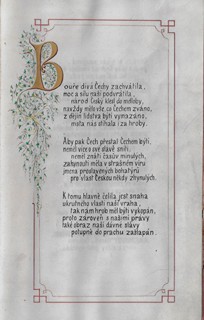 Bouře divá Čechy zachvátila,
moc a sílu naší podvrátila,
národ český klesl do mdloby,
navždy mělo vše co Čechem zváno,
z dějin lidstva býti vymazáno,
místa nás stíhala i za hroby.
Aby pak Čech přestal Čechem býti,
neměl více o své slávě sníti,
neměl znáti časův minulých,
zahynouti měla v strašném víru
jména prodavených bohatýrů
pro vlast Českou někdy zhynulých.
K tomu hlavně čelila jest snaha
ukrutného vlasti naší vraha,
tak nám hrob měl býti vykopán,
proto zároveň s našimi právy
také obraz naší dávné slávy
polupně do prachu zašlapán.